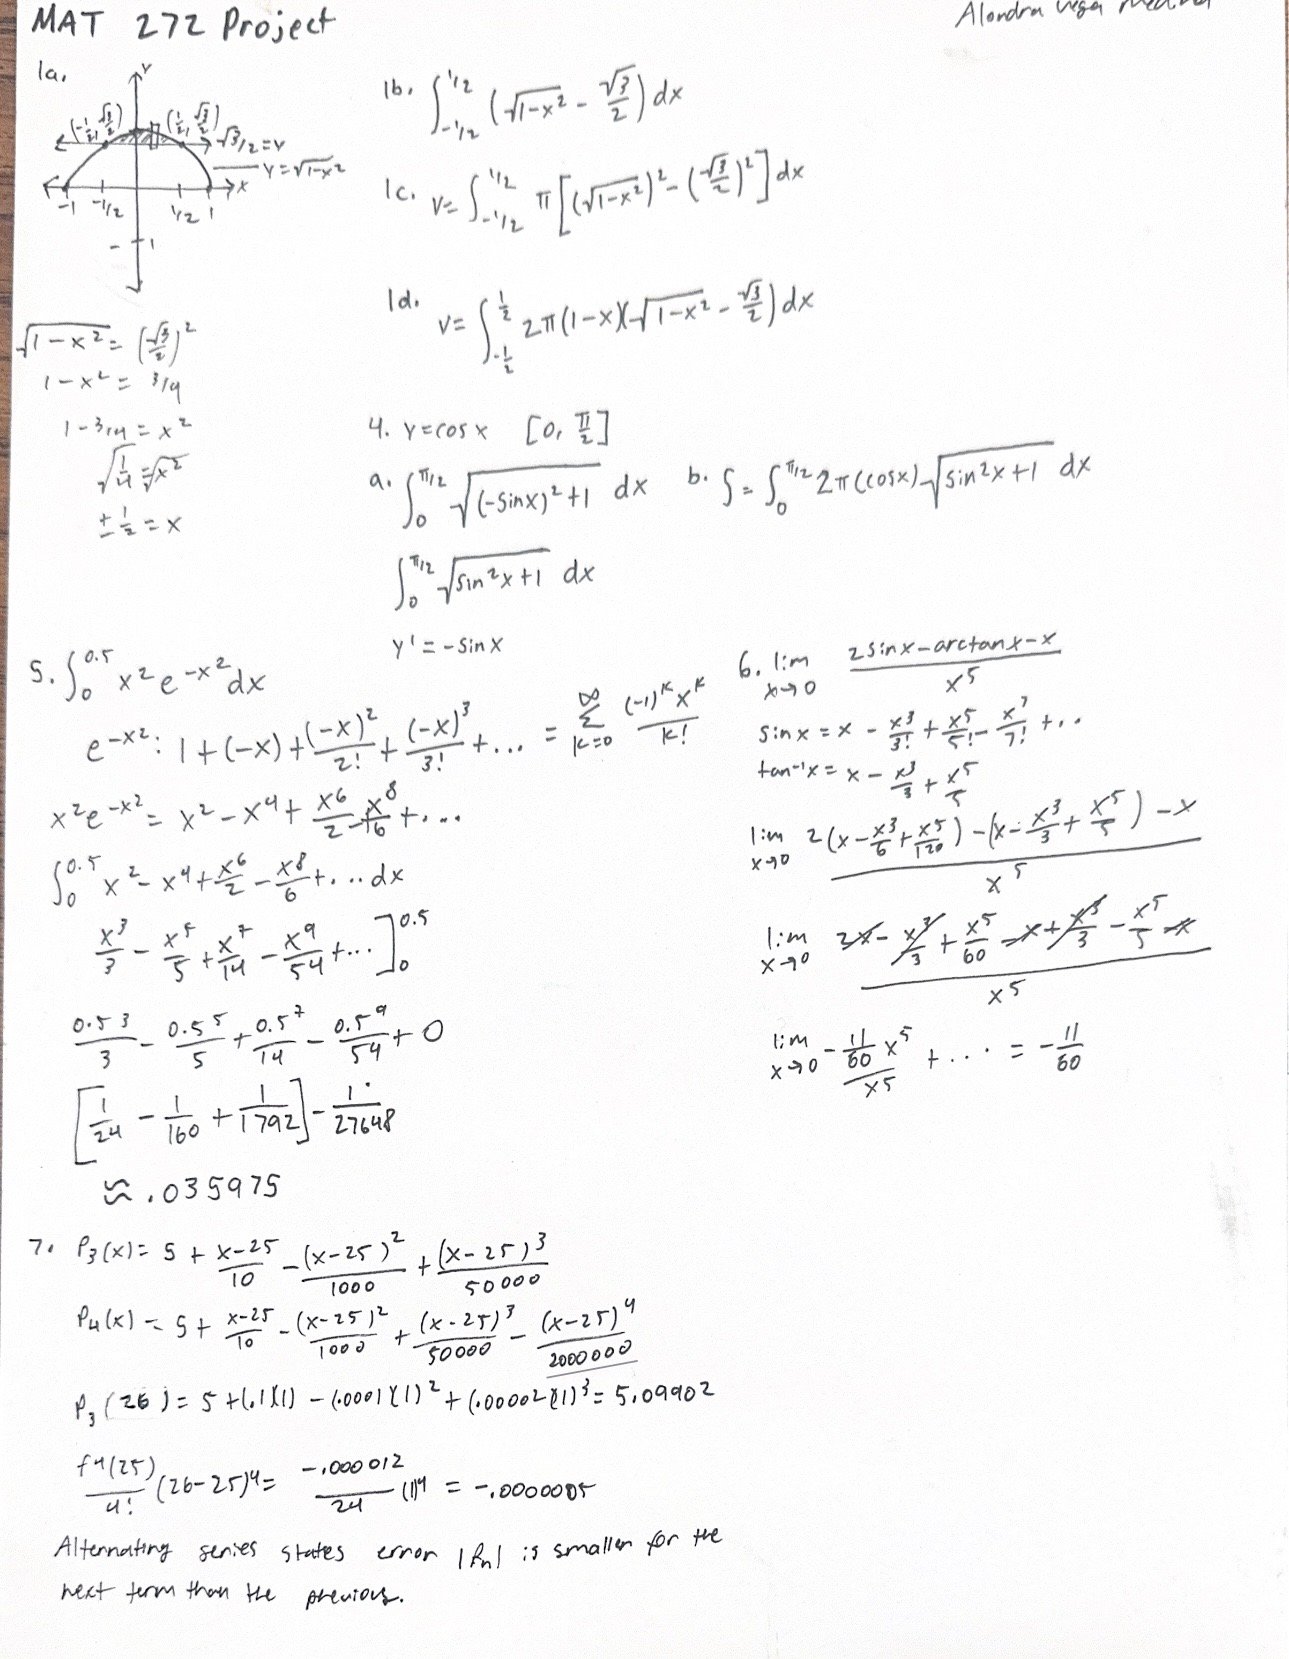 MAT 272 Project
Alondra Vega Medina
1a.
Y
(-1/2, √3/2) (1/2, √3/2)
√3/2 = Y
Y = √(1-x²)
X
-1 -1/2 1/2 1
-1
√(1-x²) = (√3/2)²
1-x² = 3/4
1-3/4 = x²
√(1/4) = √x²
± 1/2 = x
1b. ∫_{-1/2}^{1/2} (√(1-x²) - √3/2) dx
1c. V= ∫_{-1/2}^{1/2} π[(√(1-x²))² - (√3/2)²] dx
1d. V= ∫_{-1/2}^{1/2} 2π(1-x)(√(1-x²) - √3/2) dx
4. Y=cos x [0, π/2]
a. ∫_0^{π/2} √((-sinx)²+1) dx
∫_0^{π/2} √(sin²x+1) dx
y' = -sinx
b. S = ∫_0^{π/2} 2π(cosx)√(sin²x+1) dx
5. ∫_0^{0.5} x² e^{-x²} dx
e^{-x²}: 1+(-x)+(-x)²/2! + (-x)³/3! +... = ∞Σk=0 (-1)^k x^k/k!
x²e^{-x²} = x² - x⁴ + x⁶/2 - x⁸/6 +...
∫_0^{0.5} x² - x⁴ + x⁶/2 - x⁸/6 +... dx
x³/3 - x⁵/5 + x⁷/14 - x⁹/54 +... ]_0^{0.5}
0.5³/3 - 0.5⁵/5 + 0.5⁷/14 - 0.5⁹/54 + 0
[1/24 - 1/160 + 1/1792] - 1/27648
≈ .035975
6. lim x→0 (2sinx-arctanx-x)/x⁵
sinx = x - x³/3! + x⁵/5! - x⁷/7! +..
tan⁻¹x = x - x³/3 + x⁵/5
lim x→0 (2(x-x³/6+x⁵/120) - (x-x³/3+x⁵/5) - x)/x⁵
lim x→0 (2x - x³/3 + x⁵/60 - x + x³/3 - x⁵/5 - x)/x⁵
lim x→0 (-11/60 x⁵)/x⁵ + .... = -11/60
7. P₃(x) = 5 + (x-25)/10 - (x-25)²/1000 + (x-25)³/50000
P₄(x) = 5 + (x-25)/10 - (x-25)²/1000 + (x-25)³/50000 - (x-25)⁴/2000000
P₃(26) = 5+(.1)(1) - (.0001)(1)² + (.00002)(1)³ = 5.09902
f⁴(25)/4! (26-25)⁴ = -.000012/24 (1)⁴ = -.0000005
Alternating series states error |Rn| is smaller for the
next term than the previous.